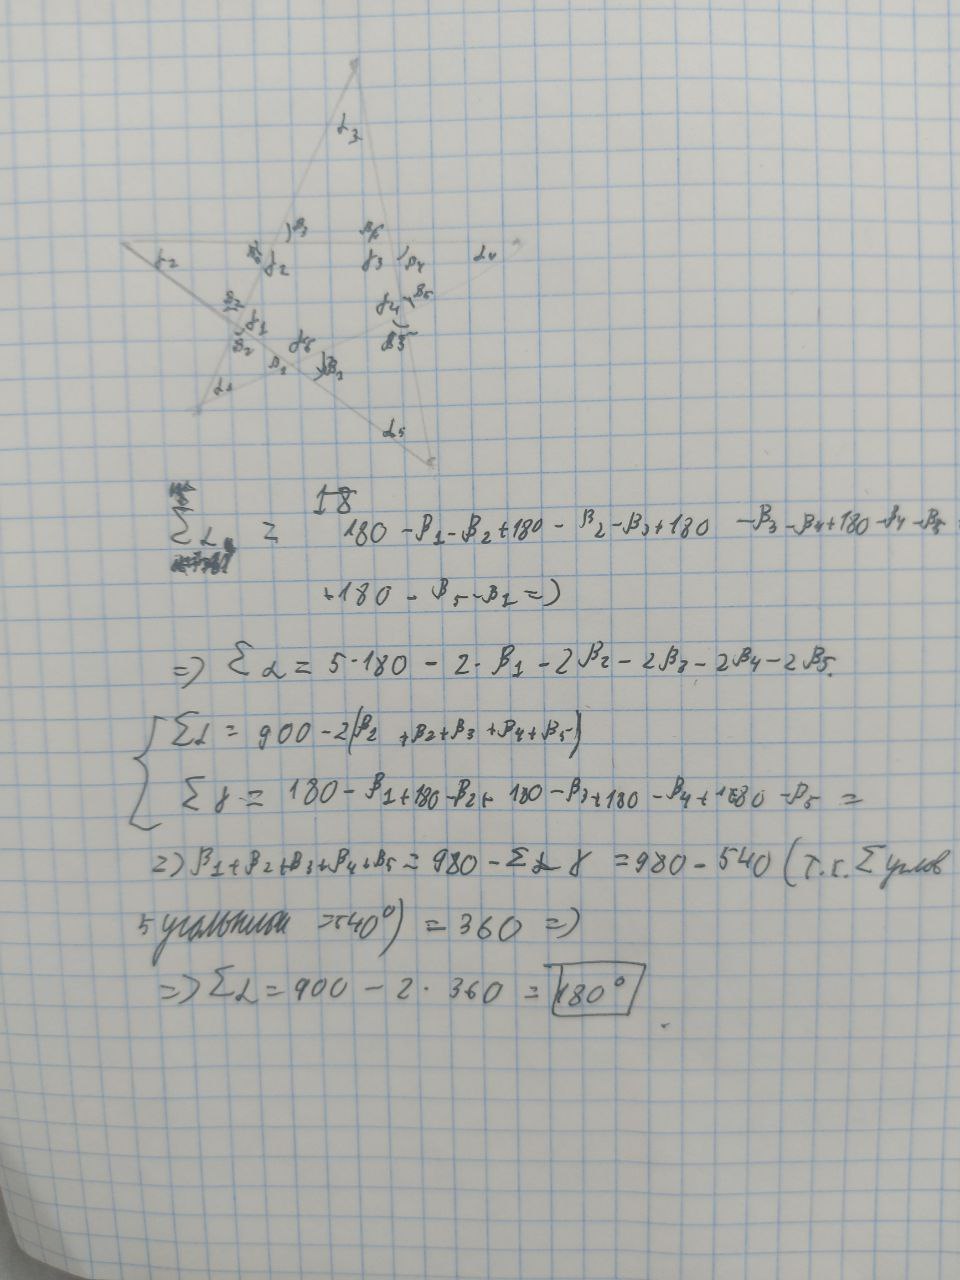 α₃
β₃ β₆
γ₂ γ₂ γ₃ β₄ α₄
β₂ γ₁ γ₄ β₅
β₂ γ₅ β₅
α₁ β₁ β₁
α₅
18
Σα = 180 - β₁ - β₂ + 180 - β₂ - β₃ + 180 - β₃ - β₄ + 180 - β₄ - β₅
+ 180 - β₅ - β₁ =>
=> Σα = 5·180 - 2·β₁ - 2β₂ - 2β₃ - 2β₄ - 2β₅.
Σα = 900 - 2(β₁ + β₂ + β₃ + β₄ + β₅)
Σγ = 180 - β₁ + 180 - β₂ + 180 - β₃ + 180 - β₄ + 180 - β₅ =
=> β₁ + β₂ + β₃ + β₄ + β₅ = 980 - Σγ = 980 - 540 (т.к. Σ углов
5 угольника = 540°) = 360 =>
=> Σα = 900 - 2·360 = 180°